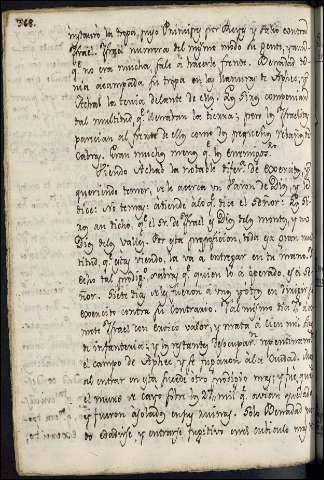 368.
instauró la tropa, puso Principes por Reyes, y salió contra
Israel. Israel numera del mismo modo su gente, y aunq.e
q.e no era mucha, sale á hacerle frente. Benadad te-
nia acampada su tropa en las llanuras de Aphec, y
Achab la tenia delante de ellos. Los Siros componian
tal multitud, q.e llenaban la tierra; pero los Israelitas
parecian al frente de ellos como dos pequeños rebaños de
Cabras. Eran muchos menos q.e los enemigos.
Viendo Achab la notable difer.a de exercitos, y
queriendo temer, se le acerca un Varon de Dios, y le
dice: No temas: atiende a lo q.e dice el Señor: Los Si-
ros an dicho, q.e el Sr. de Israel es Dios de los montes, y no
Dios de los Valles. Por esta proposicion, toda esa gran mul-
titud, q.e estas viendo, la va a entregar en tu mano.
Hecho tal prodigio, sabras q.e quien lo á operado, es el Se-
ñor. Siete dias se fueron a unos y otros en dirigir
exercito contra su contrario. Y al mismo dia 7.o aco-
mete Israel con exótico valor, y mata á cien mil
de infanteria; y in instante, desocupar.n no enteram.te
el campo de Aphec, y se fugaron á la Ciudad. Mas
al entrar en esta sucede otro prodigio mas; y fue, que
el muro se cayó sobre 27 mil q.e avian quedado
y fueron asolados en sus ruinas. Solo Benadad pu-
do evadirse y entrarse fugitivo en el cubiculo mas